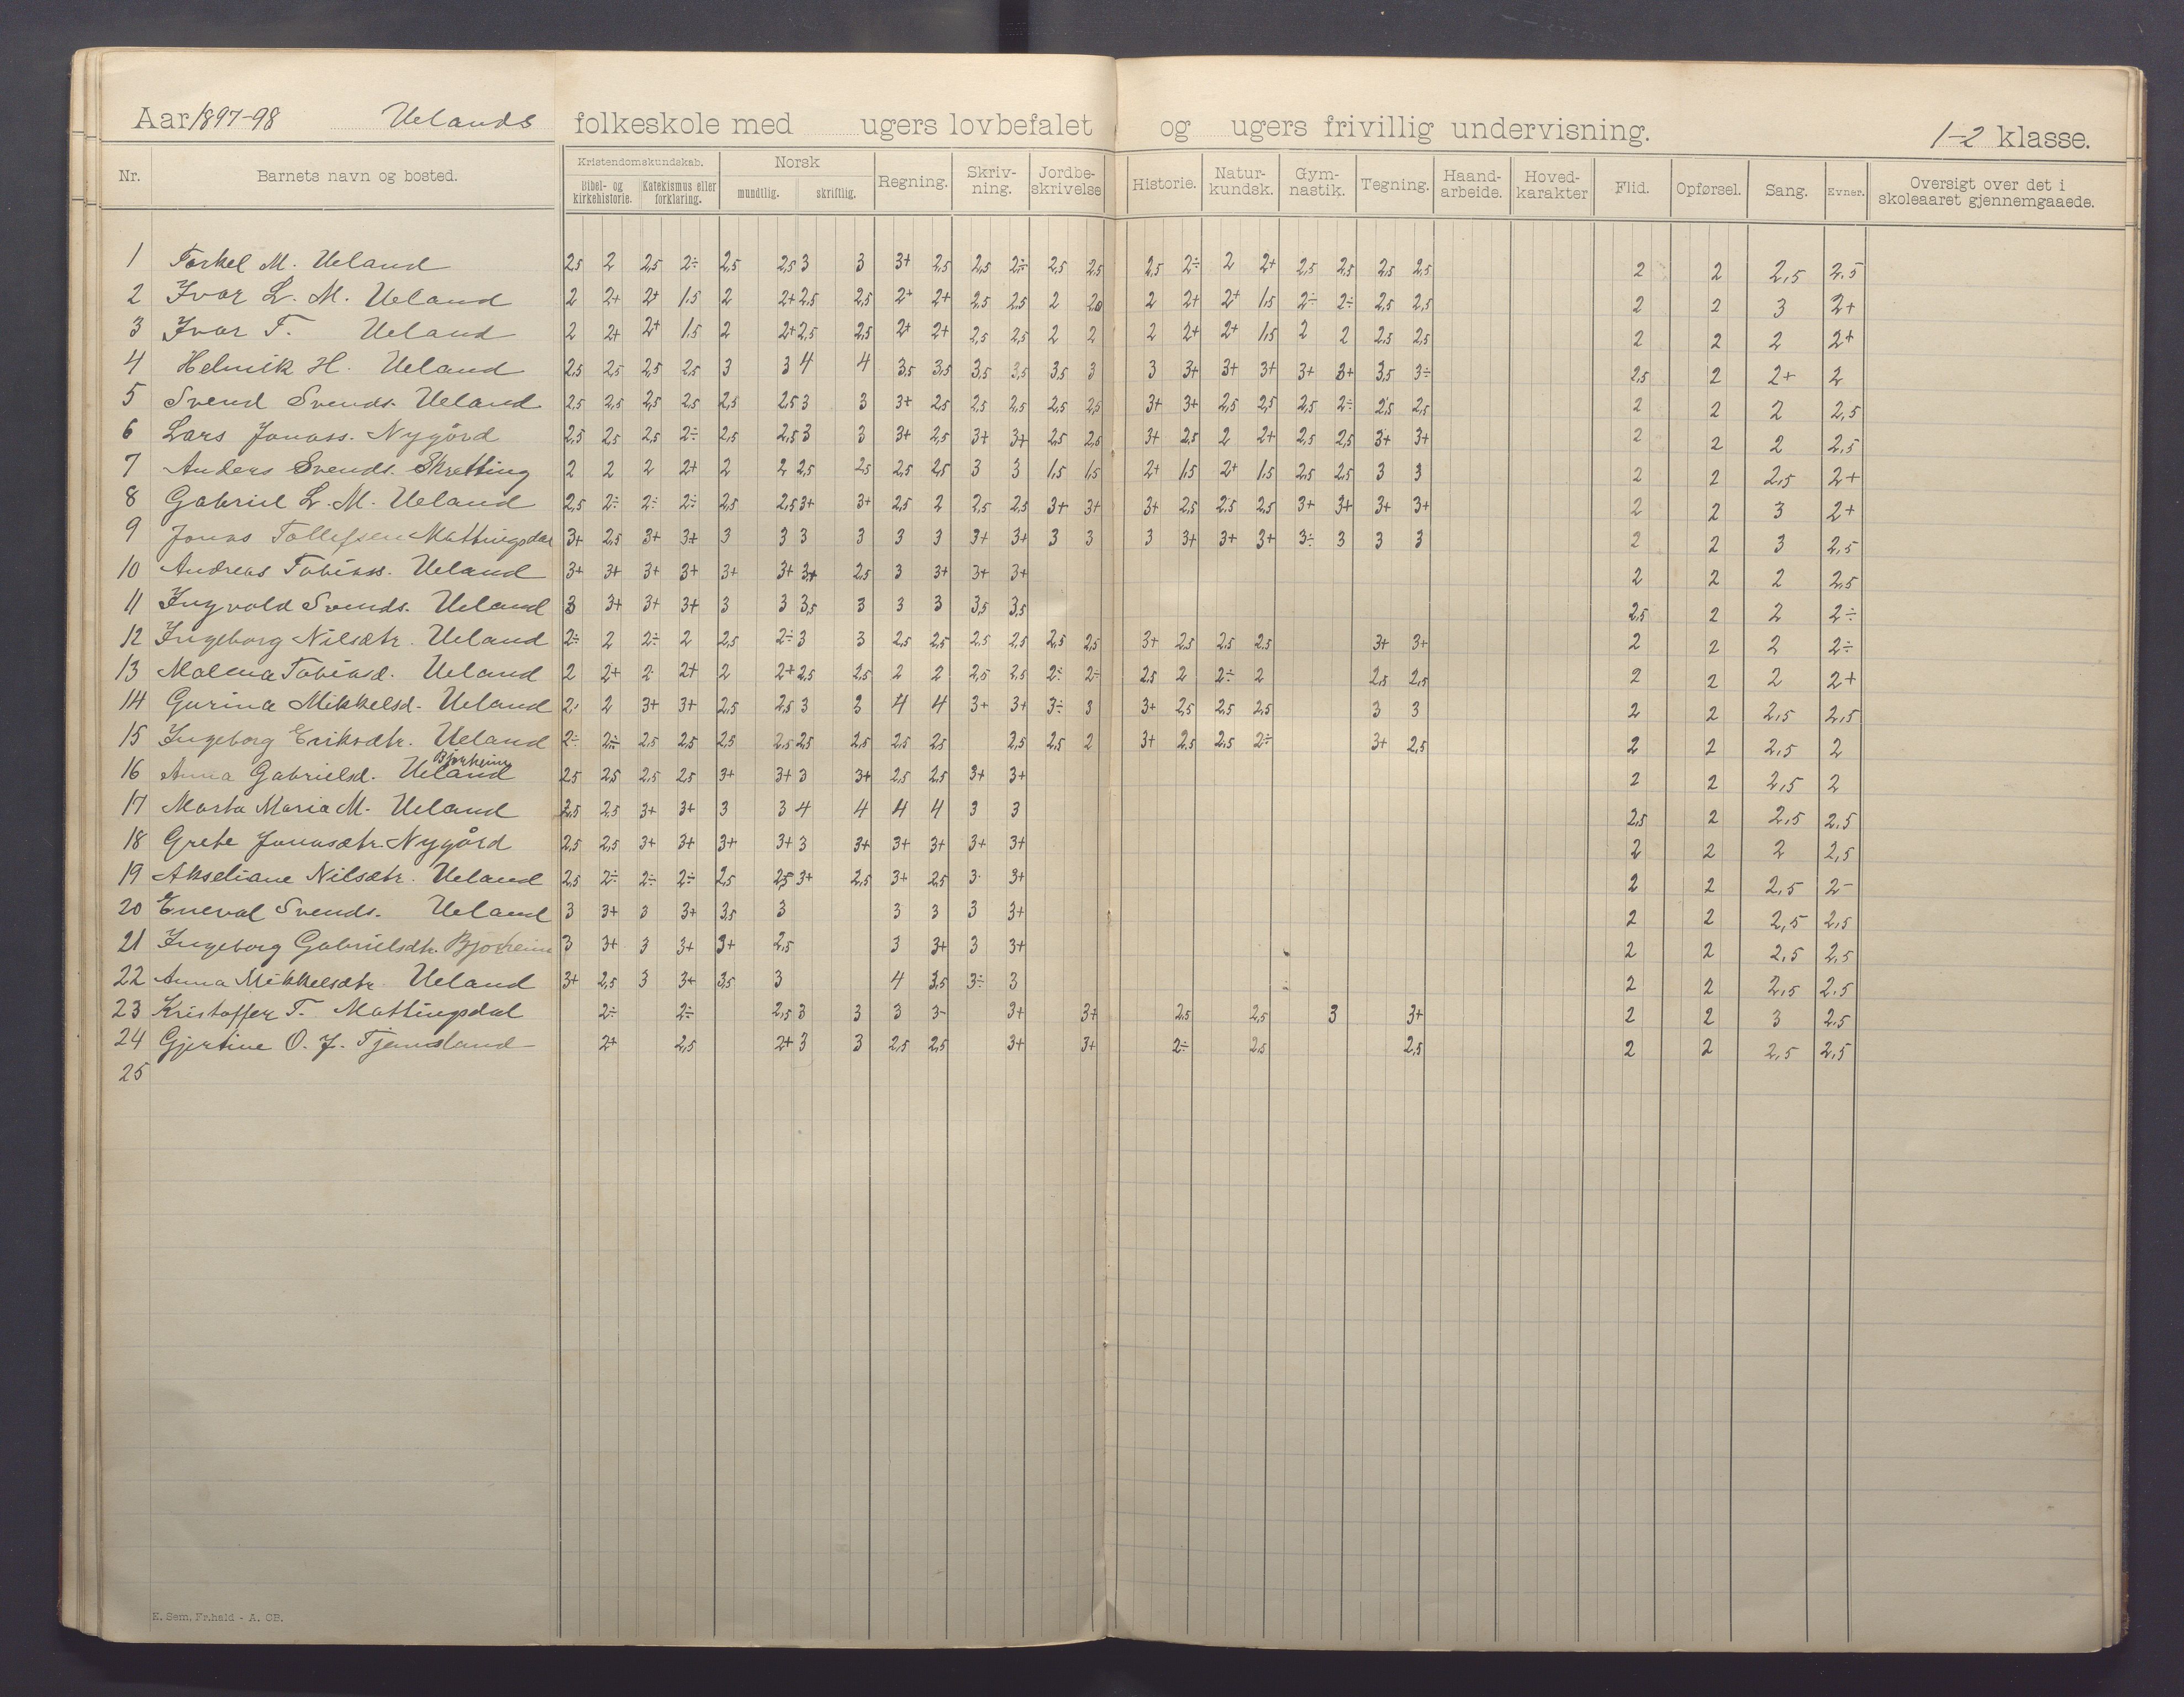 Aar 1897-98 Uelands folkeskole med ugers lovbefalet og ugers frivillig undervisning. 1-2 klasse.
Nr. Barnets navn og bosted. Kristendomskundskab. Bibel- og kirkehistorie. Katekismus eller forklaring. Norsk mundtlig. skriftlig. Regning. Skriv-ning. Jordbe-skrivelse Historie. Natur-kundsk. Gym-nastik. Tegning. Haand-arbeide. Hoved-karakter Flid. Opførsel. Sang. Evner. Oversigt over det i skoleaaret gjennemgaaede.
1 Torkel M. Ueland 2,5 2 2,5 2÷ 2,5 2,5 3 3 3+ 2,5 2,5 2÷ 2,5 2,5 2,5 2÷ 2 2+ 2,5 2,5 2,5 2,5 2 2 2,5 2,5
2 Ivar L. M. Ueland 2 2+ 2+ 1,5 2 2+ 2,5 2,5 2+ 2+ 2,5 2,5 2 2 2+ 2+ 1,5 2÷ 2÷ 2,5 2,5 2 2 3 2+
3 Ivar T. Ueland 2 2+ 2+ 1,5 2 2+ 2,5 2,5 2+ 2+ 2,5 2,5 2 2 2 2+ 2+ 1,5 2 2 2,5 2,5 2 2 2 2+
4 Helmik H. Ueland 2,5 2,5 2,5 2,5 3 3 4 4 3,5 3,5 3,5 3,5 3,5 3 3 3+ 3+ 3+ 3+ 3+ 3,5 3÷ 2,5 2 2+ 2
5 Svend Svends. Ueland 2,5 2,5 2,5 2,5 2,5 2,5 3 3 3+ 2,5 2,5 2,5 2,5 2,5 3+ 3+ 2,5 2,5 2,5 2÷ 2,5 2,5 2 2 2 2,5
6 Lars Jonass. Nygård 2,5 2,5 2,5 2÷ 2,5 2,5 3 3 3+ 2,5 3+ 3+ 2,5 2,5 3+ 2,5 2 2+ 2,5 2,5 3+ 3+ 2 2 2 2,5
7 Anders Svends. Skretting 2 2 2 2+ 2 2 2,5 2,5 2,5 2,5 3 3 1,5 1,5 2+ 1,5 2+ 1,5 2,5 2,5 3 3 2 2 2,5 2+
8 Gabriel L. M. Ueland 2,5 2÷ 2÷ 2÷ 2,5 2,5 3+ 3+ 2,5 2 2,5 2,5 3+ 3+ 3+ 2,5 2,5 2,5 3+ 3+ 3+ 3+ 2 2 3 2+
9 Jonas Tollefsen Mattingsdal 3+ 2,5 3+ 3+ 3 3 3 3 3 3 3+ 3+ 3 3 3 3+ 3+ 3+ 3÷ 3 3 3 2 2 3 2,5
10 Andreas Tobiass. Ueland 3+ 3+ 3+ 3+ 3+ 3+ 3+ 2,5 3 3+ 3+ 3+ 2 2 2 2,5
11 Ingvald Svends. Ueland 3 3+ 3+ 3+ 3 3 3,5 3 3 3 3,5 3,5 2,5 2 2 2÷
12 Ingeborg Nilsdtr. Ueland 2÷ 2 2÷ 2 2,5 2÷ 3 3 2,5 2,5 2,5 2,5 2,5 2,5 3+ 2,5 2,5 2,5 3+ 3+ 2 2 2 2÷
13 Malena Tobiasd. Ueland 2 2+ 2 2+ 2 2+ 2,5 2,5 2 2 2,5 2,5 2÷ 2÷ 2,5 2 2÷ 2 2,5 2,5 2 2 2 2+
14 Gurina Mikkelsd. Ueland 2 2 3+ 3+ 2,5 2,5 3 3 4 4 3+ 3+ 3÷ 3 3+ 2,5 2,5 2,5 3 3 2 2 2,5 2,5
15 Ingeborg Eriksdtr. Ueland 2÷ 2÷ 2,5 2,5 2,5 2,5 2,5 2,5 2,5 2,5 2,5 2,5 2 3+ 2,5 2,5 2÷ 3+ 2,5 2 2 2,5 2
Bjorheim
16 Anna Gabrielsd. Ueland 2,5 2,5 2,5 2,5 3+ 3+ 3 3+ 2,5 2,5 3+ 3+ 2 2 2,5 2
17 Marta Maria M. Ueland 2,5 2,5 3+ 3+ 3 3 4 4 4 4 3 3 2,5 2 2,5 2,5
18 Grete Jonasdtr. Nygård 2,5 2,5 3+ 3+ 3+ 3+ 3 3+ 3+ 3+ 3+ 3+ 2 2 2 2,5
19 Akseliane Nilsdtr. Ueland 2,5 2÷ 2÷ 2÷ 2,5 2,5 3+ 2,5 3+ 2,5 3 3+ 2 2 2,5 2-
20 Eneval Svends. Ueland 3 3+ 3 3+ 3,5 3 3 3 3 3+ 2 2 2,5 2,5
21 Ingeborg Gabrielsdtr. Bjorheim 3 3+ 3 3+ 3+ 2,5 3 3+ 3 3+ 2 2 2,5 2,5
22 Anna Mikkelsdtr Ueland 3+ 2,5 3 3+ 3,5 3 4 3,5 3÷ 3 2 2 2,5 2,5
23 Kristoffer T. Mattingsdal 2÷ 2÷ 2,5 3 3 3 3- 3+ 3+ 2,5 2,5 3 3+ 2 2 3 2,5
24 Gjertine O. J. Tjemsland 2+ 2,5 2+ 3 3 2,5 2,5 3+ 3+ 2÷ 2,5 2,5 2 2 2,5 2,5
25
E. Sem, Fr.hald - A. OB.